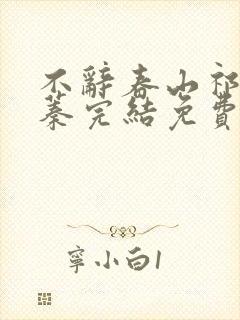 不辭春山祁
蓁完結免費
寧小白1